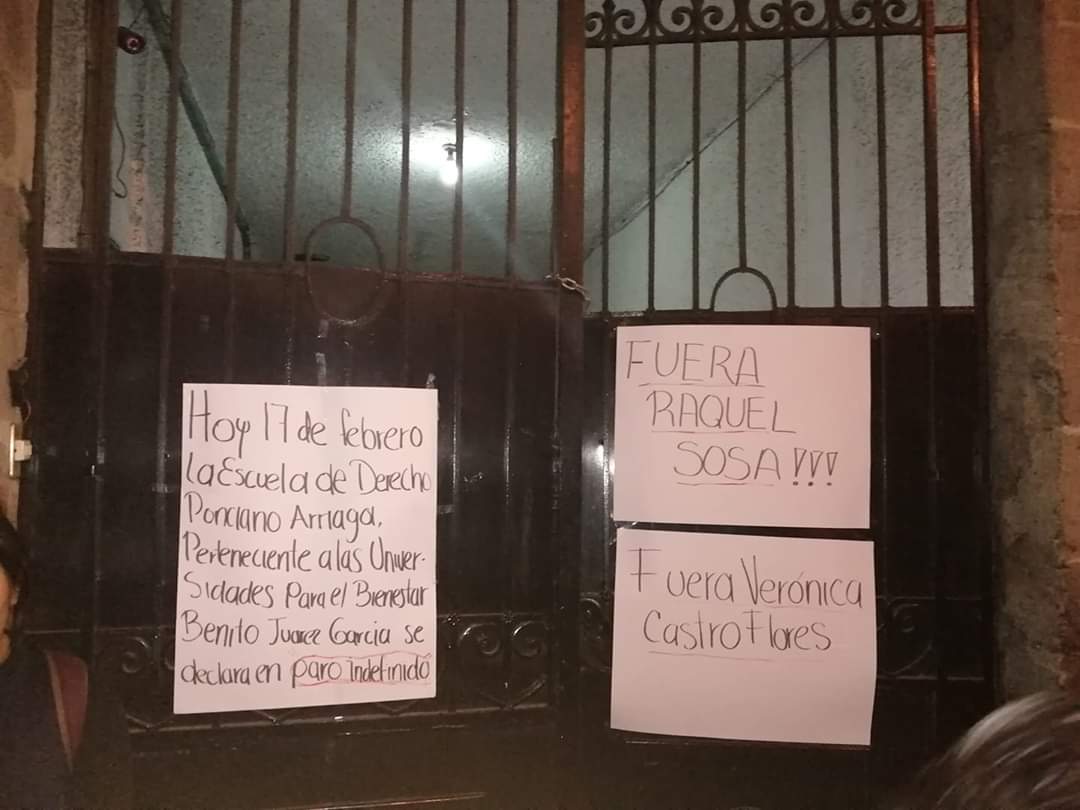 Hoy 17 de febrero
la Escuela de Derecho
Ponciano Arriaga,
Perteneciente a las Univer-
sidades Para el Bienestar
Benito Juarez Garcia se
declara en paro indefinido
FUERA
RAQUEL
SOSA!!!
Fuera Verónica
Castro Flores